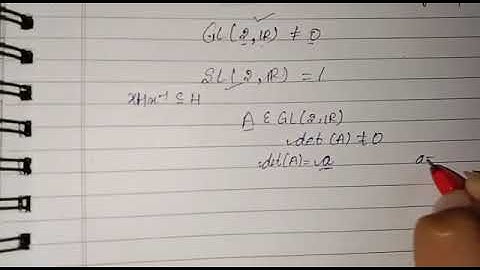 GL(2,R) ≠ 0
SL(2,R) = 1
xHx⁻¹ ⊆ H
A ε GL(2,R)
det(A) ≠ 0
det(A) = a
a=